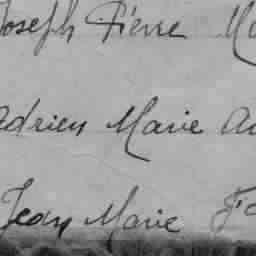 Joseph Pierre
Adrien Marie
Jean Marie